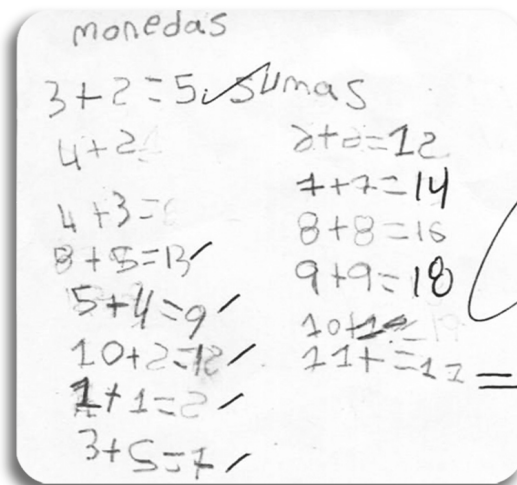 monedas
3+2=5 sumas
4+2
4+3=
8+5=13
5+4=9
10+2=12
1+1=2
3+5=7
7+7=14
8+8=16
9+9=18
11+ =11